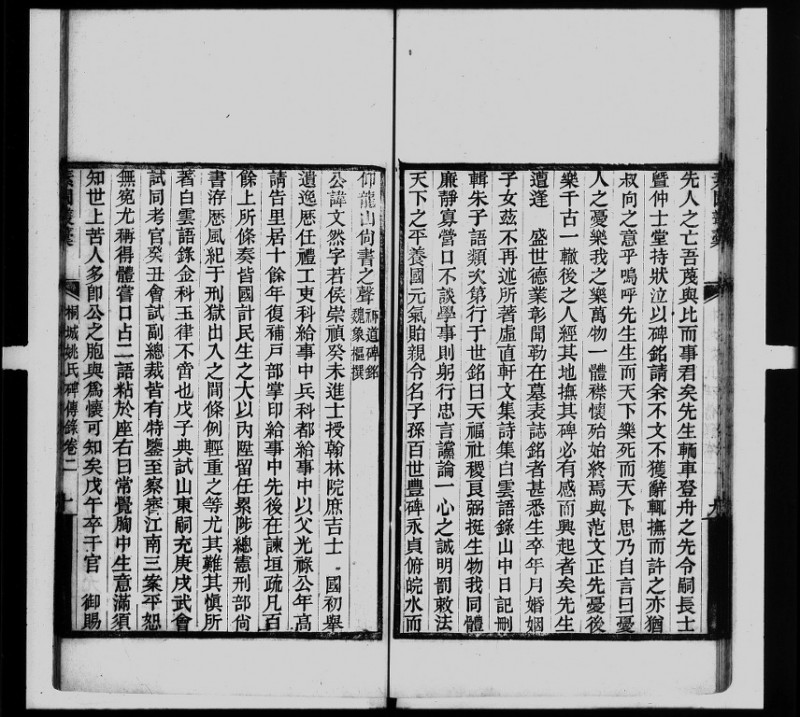 先人之亡吾蔑與比而事君矣先生輀車登舟之先令嗣長士
暨仲士堂持狀泣以碑銘請余不文不獲辭輒撫而許之亦猶
叔向之意乎嗚呼先生生而天下樂死而天下思乃自言曰憂
人之憂樂我之樂萬物一體襟懷殆始終焉與范文正先憂後
樂千古一轍後之人經其地撫其碑必有感而興起者矣先生
遭逢　盛世德業彰聞勒在墓表誌銘者甚悉生卒年月婚姻
子女茲不再述所著虛直軒文集詩集白雲語錄山中日記刪
輯朱子語類次第行于世銘曰天福社稷良弼挺生物我同體
廉靜寡營口不談學事則躬行忠言讜論一心之誠明罰敕法
天下之平養國元氣貽親令名子孫百世豐碑永貞俯皖水而
仰龍山尚書之聲
神道碑銘
魏象樞撰
公諱文然字若侯崇禎癸未進士授翰林院庶吉士　國初舉
遺逸歷任禮工吏科給事中兵科都給事中以父光祿公年高
請告里居十餘年復補戶部掌印給事中先後在諫垣疏凡百
餘上所條奏皆國計民生之大以內陞留任累陟總憲刑部尚
書洊歷風紀于刑獄出入之間條例輕重之等尤其難其慎所
著白雲語錄金科玉律不啻也戊子典試山東嗣充庚戌武會
試同考官癸丑會試副總裁皆有特鑒至察審江南三案平恕
無冤尤稱得體嘗口占二語粘於座右曰常覺胸中生意滿須
知世上苦人多卽公之胞與爲懷可知矣戊午卒于官　御賜
桐城姚氏碑傳錄卷二